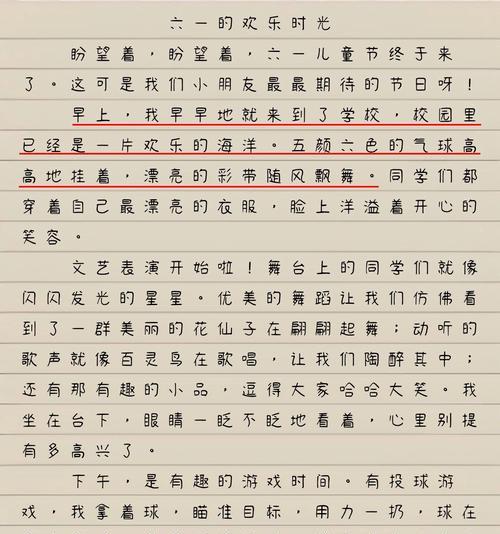 六一的欢乐时光
盼望着，盼望着，六一儿童节终于来
了。这可是我们小朋友最最期待的节日呀！
早上，我早早地就来到了学校，校园里
已经是一片欢乐的海洋。五颜六色的气球高
高地挂着，漂亮的彩带随风飘舞。同学们都
穿着自己最漂亮的衣服，脸上洋溢着开心的
笑容。
文艺表演开始啦！舞台上的同学们就像
闪闪发光的星星。优美的舞蹈让我们仿佛看
到了一群美丽的花仙子在翩翩起舞；动听的
歌声就像百灵鸟在歌唱，让我们陶醉其中；
还有那有趣的小品，逗得大家哈哈大笑。我
坐在台下，眼睛一眨不眨地看着，心里别提
有多高兴了。
下午，是有趣的游戏时间。有投球游
戏，我拿着球，瞄准目标，用力一扔，球在